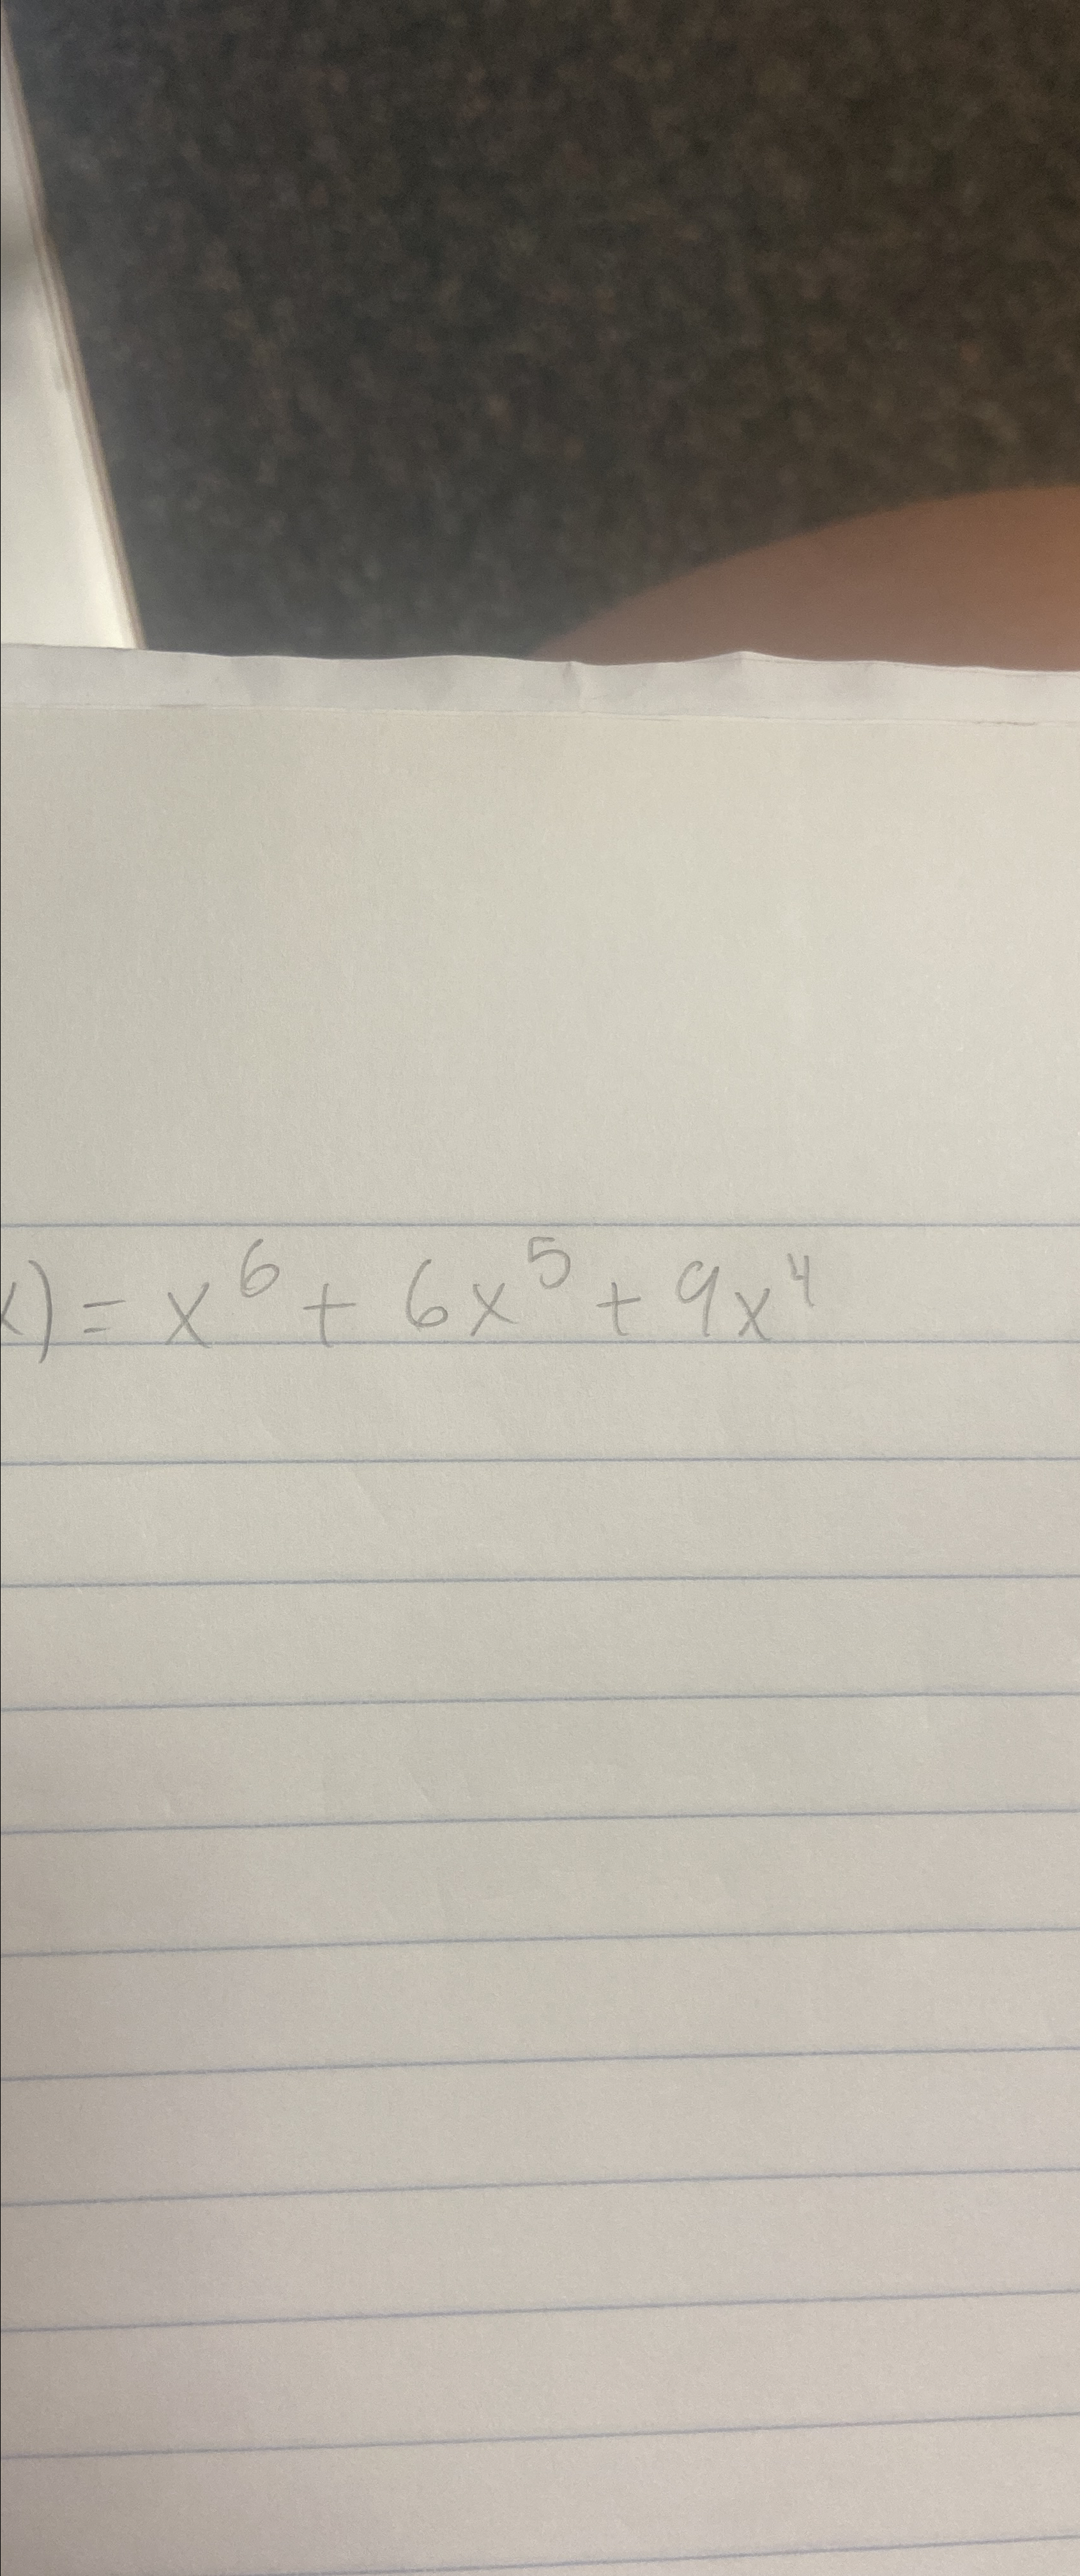 x) = x⁶ + 6x⁵ + 9x⁴